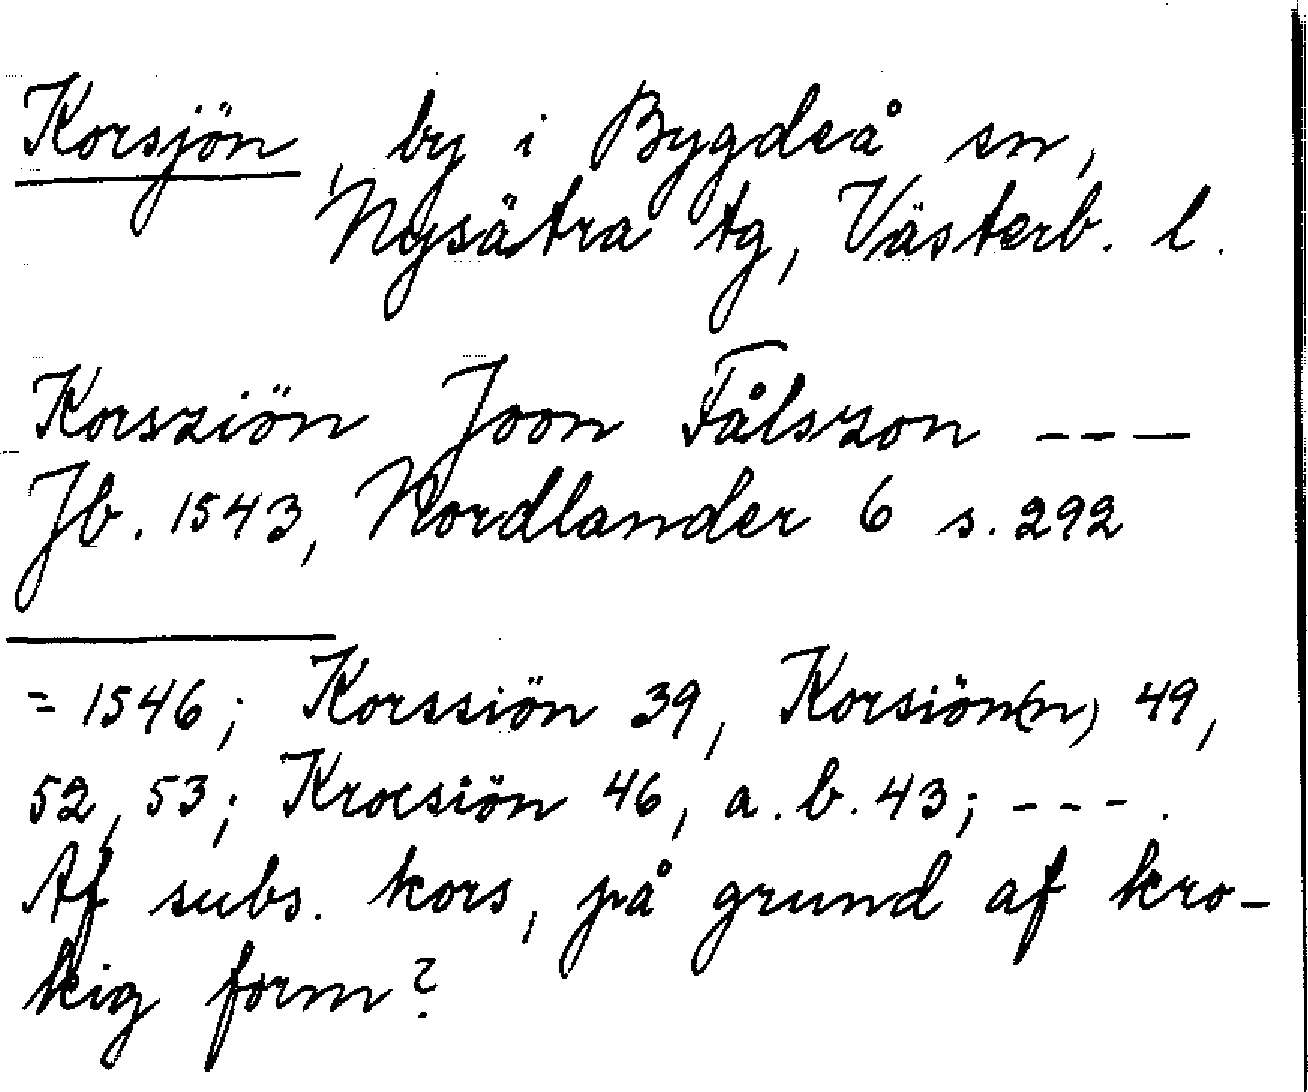 Korsjön, by i Bygdeå sn,
Nysätra tg, Västerb. l.
Korsziön Joon Fålszon ---
Jb. 1543, Nordlander 6 s. 292
= 1546; Korssiön 39, Korsiön(n) 49,
52, 53; Krocsiön 46, a. b. 43; ---.
Af subs. kors, på grund af kro-
kig form?